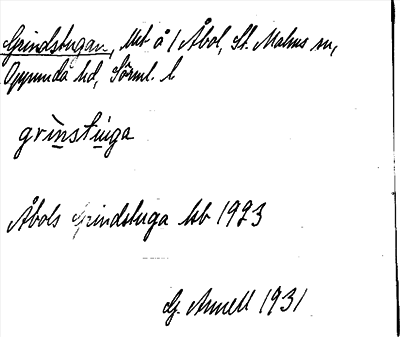 Grindstugan, lht å 1 Åbol, St. Malms sn,
Oppunda hd, Sörml. l
grinstuga
Åbols Grindstuga lsb 1923
G. Annell 1931